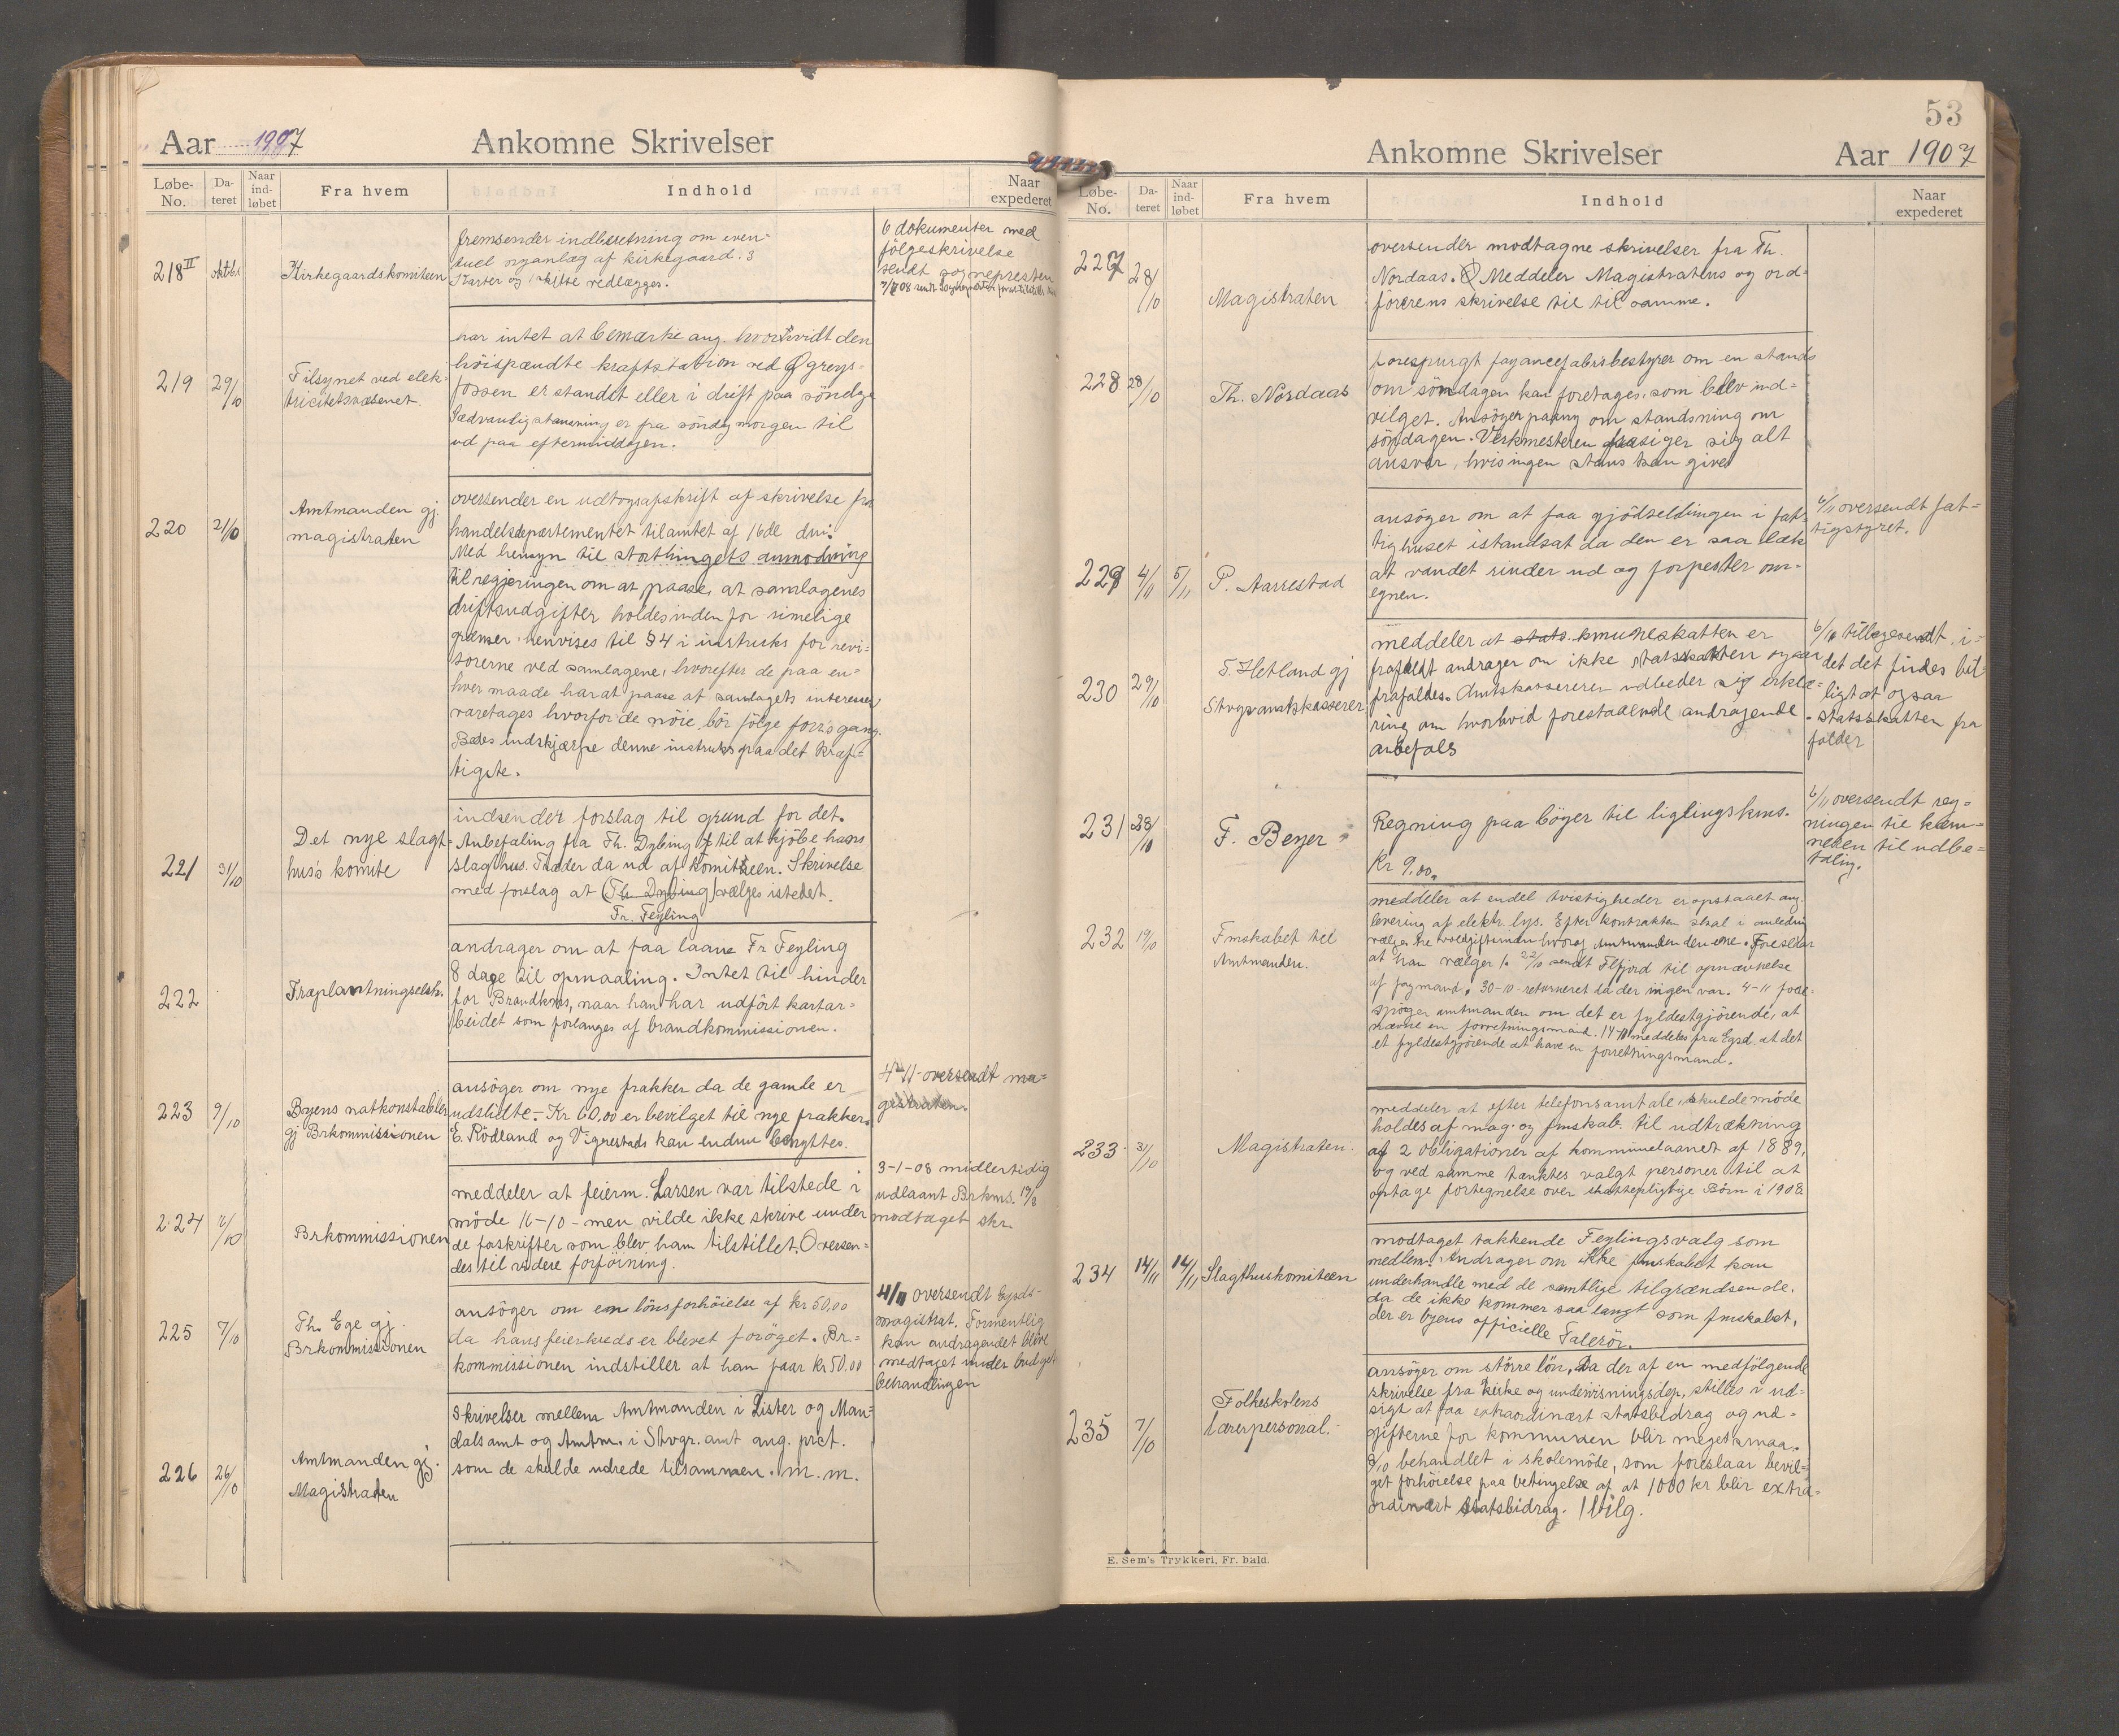 Aar 1907 Ankomne Skrivelser
Løbe-No. Da-teret Naar ind-løbet Fra hvem Indhold Naar expederet
218 II Oktbr Kirkegaardskomiteen
fremsender indberetning om even-
tuel nyanlæg af kirkegaard. 3
Karter og skitse vedlægges.
6 dokumenter med
følgeskrivelse
sendt sognepresten
219 29/10 Tilsynet ved elek-
tricitetsvæsenet
har intet at bemærke ang. hvorvidt den
høispændte kraftstation ved Øgreys-
fossen er standset eller i drift paa søndage
Sædvanlig stansning er fra søndag morgen til
ud paa eftermiddagen.
220 21/10 Amtmanden gj.
magistraten
oversender en udtogsafskrift af skrivelse fra
handelsdepartementet til amtet af 16de dni.
Med hensyn til storthingets anmodning
til regjeringen om at paase, at samlagenes
driftsudgifter holdes inden for rimelige
grænser, henvises til § 4 i instruks for revi-
sorerne ved samlagene, hvorefter de paa en-
hver maade har at paase at samlagets interesser
varetages hvorfor de nøie bør følge forr's gang.
Bedes indskjærpe denne instruks paa det kraf-
tigste.
221 31/10 Det nye slagt-
hus's komite
indsender forslag til grund for det.
Anbefaling fra Th. Dybing til at kjøbe hans
slagthus. Træder da ud af komitteen. Skrivelse
med forslag at (Th. Dybing) vælges istedet.
Fr. Feyling
222 Træplantningselsk.
andrager om at faa laane Fr Feyling
8 dage til opmaaling. Intet til hinder
for Brandkms, naar han har udført kartar-
beidet som forlanges af brandkommissionen.
223 9/10 Byens natkonstabler
gj Brkommissionen
ansøger om nye frakker da de gamle er
udslidte - Kr 60,00 er bevilget til nye frakker
E. Rödland og Vigrestads kan endnu benyttes.
4-11-oversendt ma-
gistraten.
224 Brkommissionen
meddeler at feierm. Larsen var tilstede i
møde 16-10- men vilde ikke skrive under
de faskrifter som blev ham tilstillet. Oversen-
des til videre forføining.
3-1-08 midlertidig
udlaant Brkms.
modtaget skr.
225 7/10 Th. Ege gj.
Brkommissionen
ansøger om en lønsforhøielse af kr 50,00
da hans feierkreds er blevet forøget. Br-
kommissionen indstiller at han faar Kr 50.00
4/11 oversendt byods-
magistrat. Formentlig
kan andragendet blive
medtaget under budget
behandlingen
226 26/10 Amtmanden gj.
Magistraten
Skrivelser mellem Amtmanden i Lister og Man-
dals amt og Amtm. i Stvgr. amt ang. prct.
som de skulde udrede tilsammen. m. m.
53
Ankomne Skrivelser Aar 1907
Løbe-No. Da-teret Naar ind-løbet Fra hvem Indhold Naar expederet
227 28/10 Magistraten
oversender modtagne skrivelser fra Th.
Nordaas. Meddeler Magistratens og ord-
førerens skrivelse til til samme.
228 28/10 Th. Nordaas
forespurgt fayancefabrbestyrer om en stands
om søndagen kan foretages, som blev ind-
vilget. Ansøger paany om standsning om
søndagen. Verkmesteren frasiger sig alt
ansvar, hvis ingen stans kan gives
229 4/11 5/11 P. Aarrestad
ansøger om at faa gjødselbingen i fat-
tighuset istandsat da den er saa læk
at vandet rinder ud og forpester om-
egnen.
6/11 oversendt fat-
tigstyret.
230 29/10 T. Hetland gj
Stvgr amtskasserer
meddeler at stats. kmuneskatten er
frafaldt andrager om ikke statsskatten ogsaa
frafaldes. Amtskassereren udbeder sig erklæ-
ring om hvorvid forestaaende andragende
anbefals
6/11 tilbagesendt, i-
det det findes bil-
ligt at ogsaa
statsskatten fra
falder
231 28/10 F. Beyer
Regning paa bøger til ligningskms.
Kr 9,00.
6/11 oversendt reg-
ningen til kæm-
neren til udbe-
taling.
232 19/10 Fmskabet til
Amtmanden.
meddeler at endel tvistigheder er opstaaet ang
levering af elektr. lys. Efter kontrakten skal i anledn
vælges tre voldgiftsmænd hvoraf Amtmanden den ene. Foreslaar
at han vælger 1. 22/10 sendt Flfjord til opnævnelse
af fagmand. 30-10 returneret da der ingen var. 4-11 fore-
spørger amtmanden om det er fyldestgjørende, at
nævne en forretningsmand. 14-11 meddeles fra Egsd. at det
et fyldestgjørende at have en forretningsmand.
233 31/10 Magistraten.
meddeler at efter telefonsamtale, skulde møde
holdes af mag. og fmskab. til udtrækning
af 2 obligationer af kommunelaanet af 1889,
og ved samme tænktes valgt personer til at
optage fortegnelse over skattepligtige Børn i 1908
234 14/11 14/11 Slagthuskomiteen
modtaget takkende Feylings valg som
medlem. Andrager om ikke fmskabet kan
underhandle med de samtlige tilgrændsende.
da de ikke kommer saa langt som fmskabet,
der er byens officielle Talerør.
235 7/10 Folkeskolens
lærerpersonal.
ansøger om større løn, da der af en medfølgende
skrivelse fra kirke og undervisningsdep, stilles i ud-
sigt at faa extraordinært statsbidrag og ud-
gifterne for kommunen blir meget smaa.
9/10 behandlet i skolemøde, som foreslaar bevil-
get forhøielse paa betingelse af at 1000 kr blir extra-
ordinært statsbidrag. 1 bilg.
E. Sem's Trykkeri, Fr. hald.